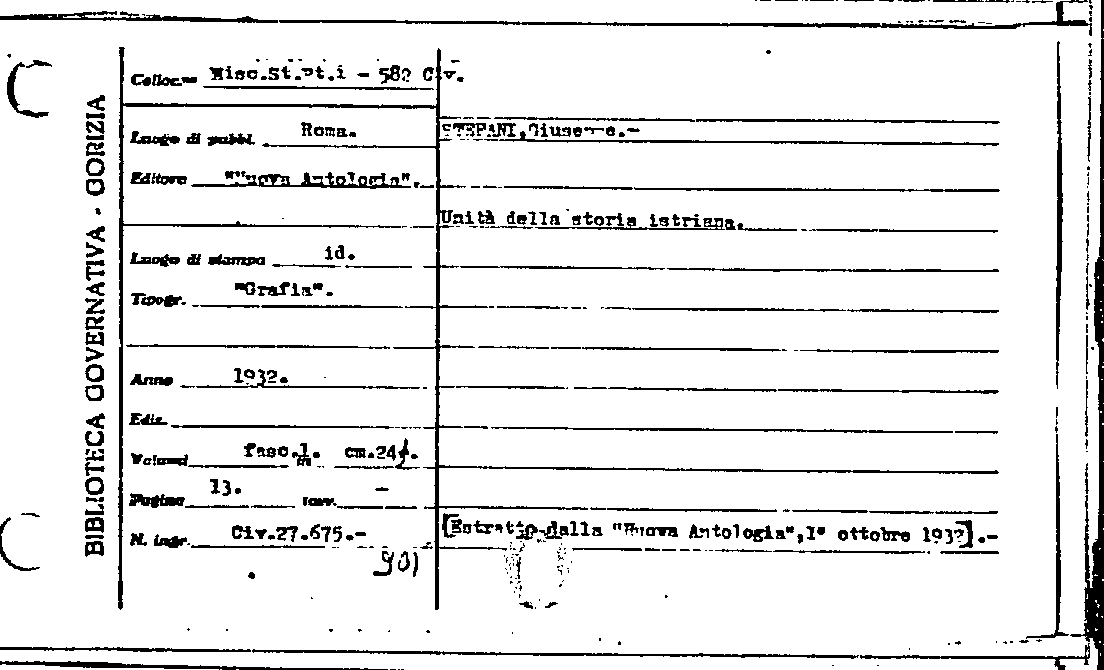 BIBLIOTECA GOVERNATIVA - GORIZIA
Colloc.ne Misc.St.Pt.i - 582 Civ.
Luogo di pubbl. Roma.
STEFANI,Giuseppe.-
Editore "Nuova Antologia".
Unità della storia istriana.
Luogo di stampa id.
Tipogr. "Grafia".
Anno 1932.
Ediz.
Volumi fasc.1. cm.24
Pagine 13. tav. -
N. ingr. Civ.27.675.-
[Estratto dalla "Nuova Antologia",1° ottobre 1932].-
901